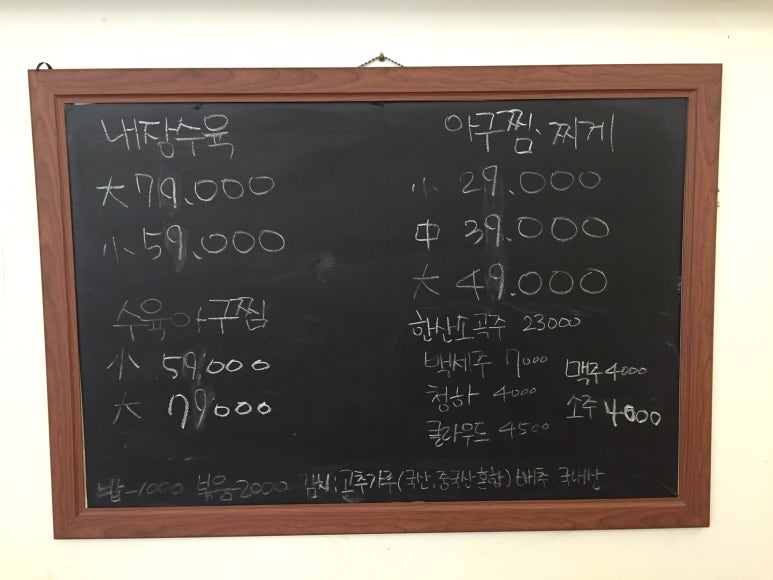 내장수육
大 79.000
小 59.000
수육아구찜
小 59000
大 79000
아구찜.찌게
小 29.000
中 39.000
大 49.000
한산소곡주 23000
백세주 7000
청하 4000
클라우드 4500
맥주 4000
소주 4000
밥-1000 볶음-2000 김치:고추가루(국산.중국산혼합) 배추 국내산